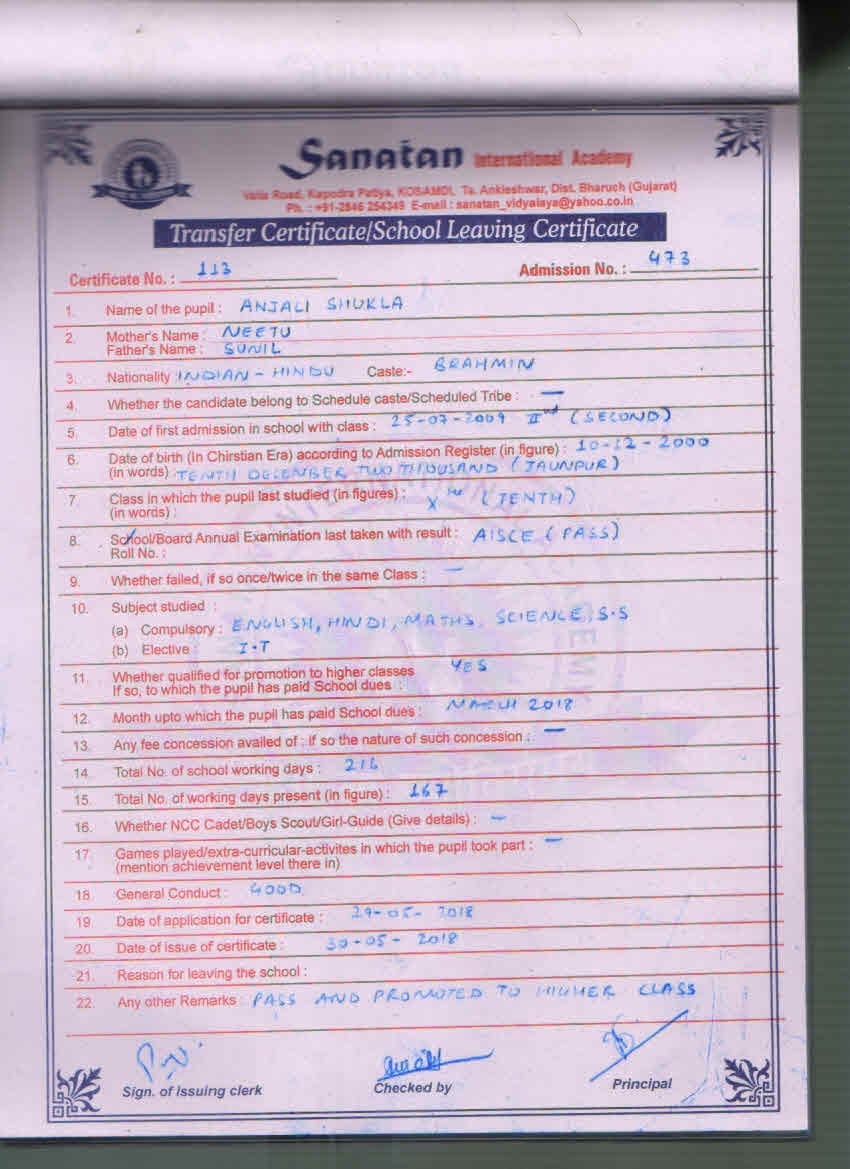 Sanatan International Academy
Valia Road, Kapodra Patiya, KOSAMDI, Ta. Ankleshwar, Dist. Bharuch (Gujarat)
Ph. : +91-2646 254349 E-mail : sanatan_vidyalaya@yahoo.co.in
Transfer Certificate/School Leaving Certificate
Certificate No. : 113 Admission No. : 473
1. Name of the pupil : ANJALI SHUKLA
2. Mother's Name : NEETU
Father's Name : SUNIL
3. Nationality INDIAN - HINDU Caste:- BRAHMIN
4. Whether the candidate belong to Schedule caste/Scheduled Tribe : —
5. Date of first admission in school with class : 25-07-2009 IInd (SECOND)
6. Date of birth (In Chirstian Era) according to Admission Register (in figure) : 10-12-2000
(in words) : TENTH DECEMBER TWO THOUSAND (JAUNPUR)
7. Class in which the pupil last studied (in figures) : Xth (TENTH)
(in words) :
8. School/Board Annual Examination last taken with result : AISCE (PASS)
Roll No. :
9. Whether failed, if so once/twice in the same Class : —
10. Subject studied :
(a) Compulsory : ENGLISH, HINDI, MATHS, SCIENCE, S.S
(b) Elective I.T
11. Whether qualified for promotion to higher classes YES
If so, to which the pupil has paid School dues :
12. Month upto which the pupil has paid School dues : MARCH 2018
13. Any fee concession availed of : if so the nature of such concession : —
14. Total No. of school working days : 216
15. Total No. of working days present (in figure) : 167
16. Whether NCC Cadet/Boys Scout/Girl-Guide (Give details) : —
17. Games played/extra-curricular-activites in which the pupil took part : —
(mention achievement level there in)
18. General Conduct : GOOD
19. Date of application for certificate : 29-05-2018
20. Date of issue of certificate : 30-05-2018
21. Reason for leaving the school :
22. Any other Remarks : PASS AND PROMOTED TO HIGHER CLASS
Sign. of Issuing clerk Checked by Principal